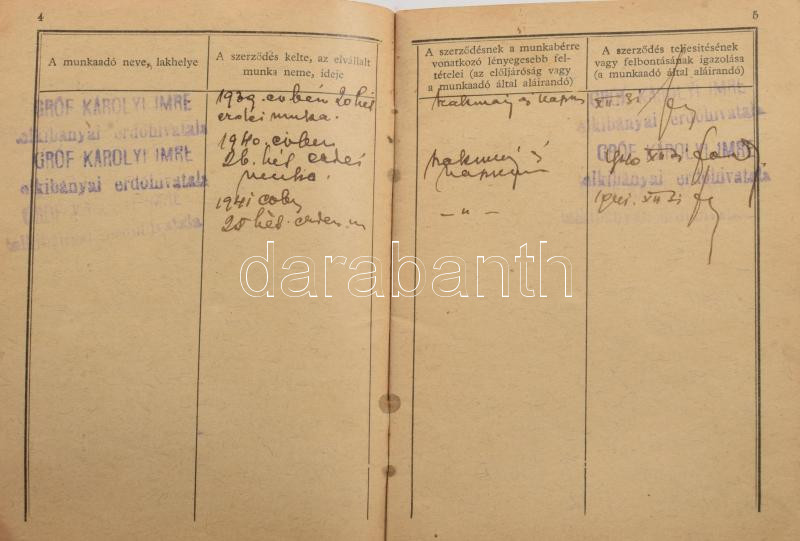 4
A munkaadó neve, lakhelye
A szerződés kelte, az elvállalt
munka neme, ideje
GRÓF KÁROLYI IMRE
telkibányai erdőhivatala
GRÓF KÁROLYI IMRE
telkibányai erdőhivatala
GRÓF KÁROLYI IMRE
telkibányai erdőhivatala
1939. évben 20 hét
erdei munka.
1940. évben
26. hét erdei
munka.
1941 évben
25 hét. erdei m
5
A szerződésnek a munkabérre
vonatkozó lényegesebb fel-
tételei (az előljáróság vagy
a munkaadó által aláirandó)
A szerződés teljesitésének
vagy felbontásának igazolása
(a munkaadó által aláirandó)
szakmány és napszám
XII. 31
szakmány és
napszám
GRÓF KÁROLYI IMRE
telkibányai erdőhivatala
1940 XII 31
- " -
1941. XII 31
darabanth